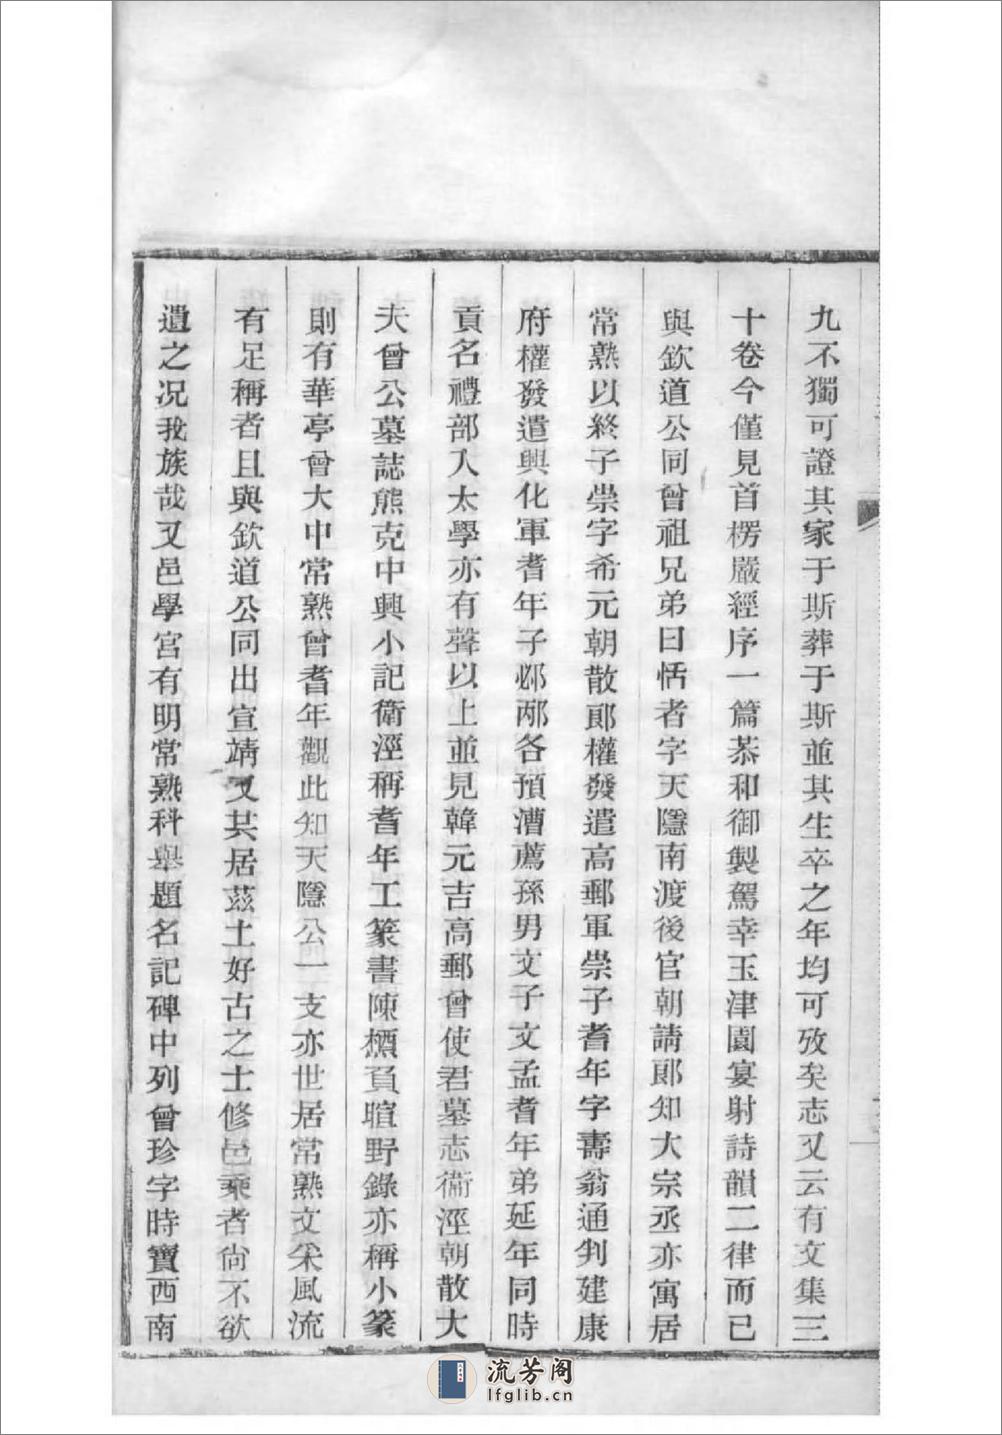 九不獨可證其家于斯葬于斯並其生卒之年均可攷矣志又云有文集三
十卷今僅見首楞嚴經序一篇恭和御製駕幸玉津園宴射詩韻二律而已
與欽道公同曾祖兄弟曰恬者字天隱南渡後官朝請郎知大宗丞亦寓居
常熟以終子崇字希元朝散郎權發遣高郵軍崇子耆年字壽翁通判建康
府權發遣興化軍耆年子邲邴各預漕薦孫男文子文孟耆年弟延年同時
貢名禮部入太學亦有聲以上並見韓元吉高郵曾使君墓志衞涇朝散大
夫曾公墓誌熊克中興小記衛涇稱耆年工篆書陳槱負暄野錄亦稱小篆
則有華亭曾大中常熟曾耆年觀此知天隱公一支亦世居常熟文采風流
有足稱者且與欽道公同出宣靖又其居茲土好古之士修邑乘者尙不欲
遺之况我族哉又邑學宮有明常熟科舉題名記碑中列曾珍字時寶西南
流芳阁
lfglib.cn